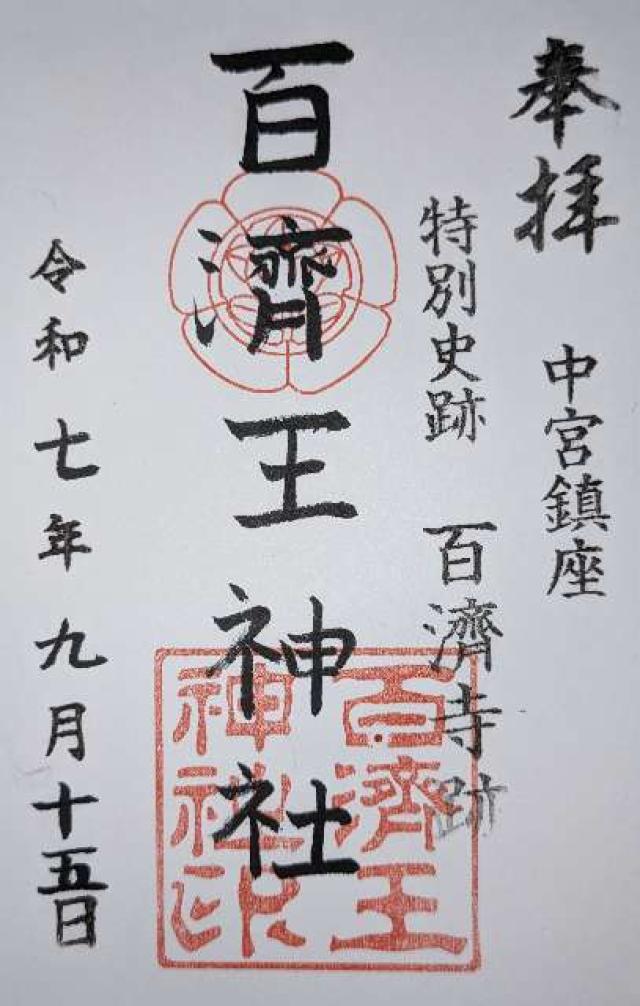 奉拝
中宮鎮座
特別史跡
百濟寺跡
百濟王神社
百濟王
神社印
令和七年九月十五日